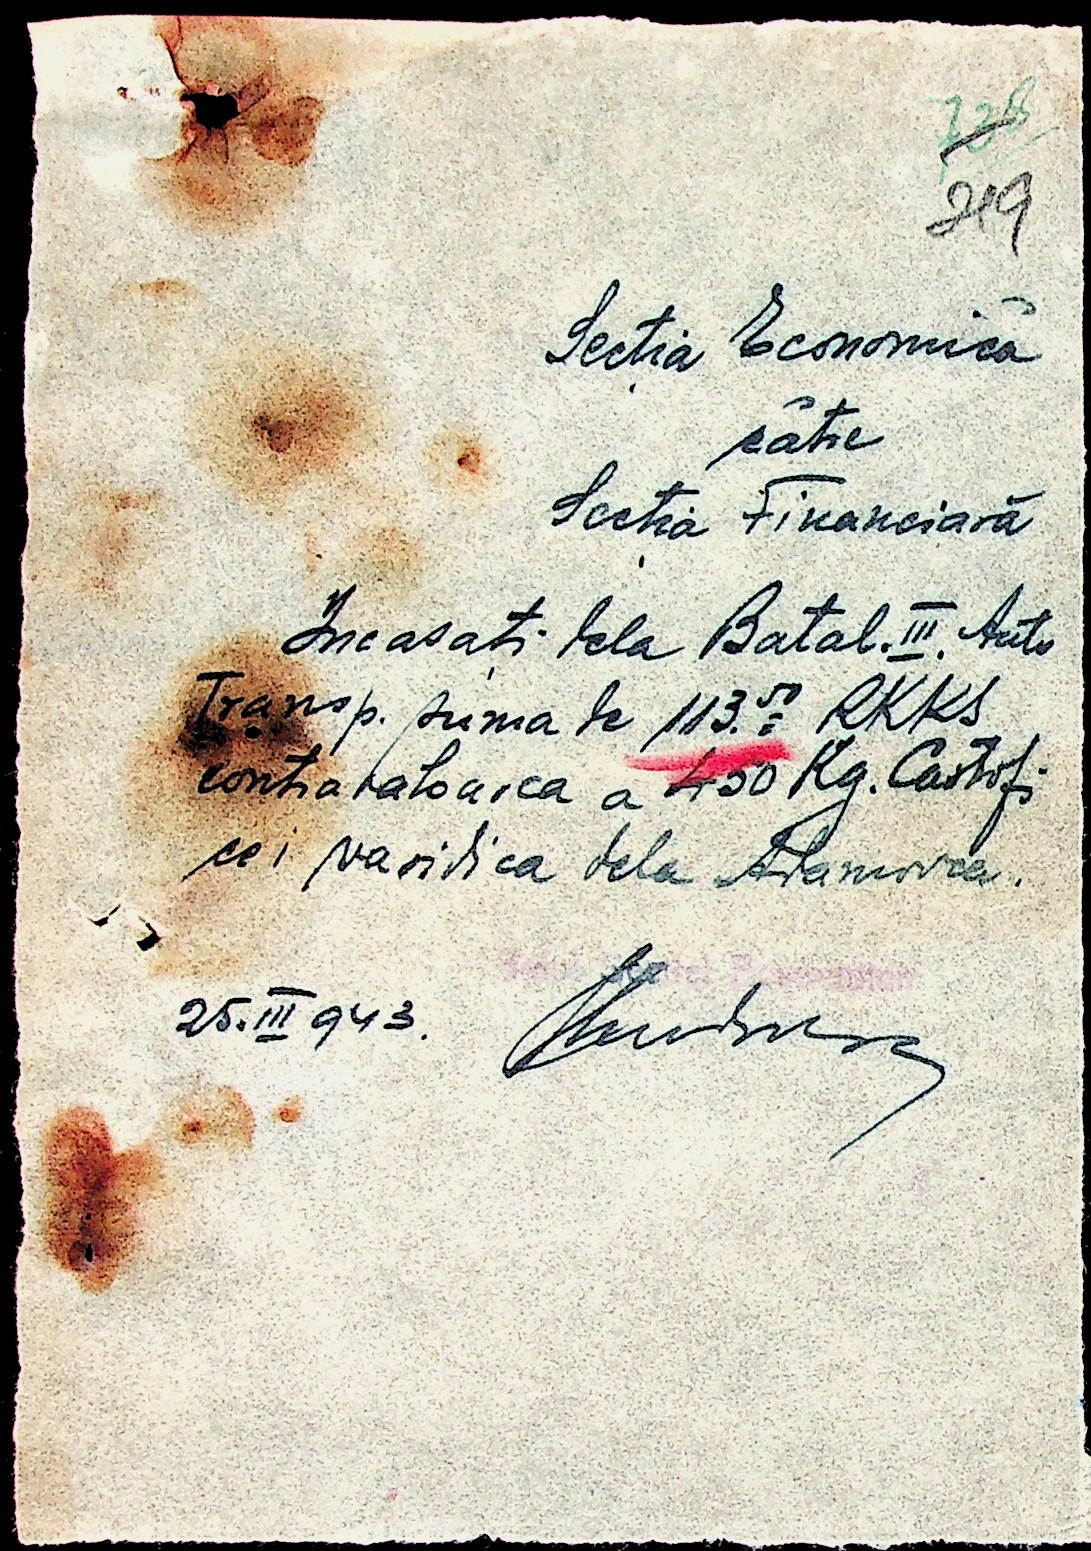 728
219
Secția Economică
către
Secția Financiară
Încasați dela Batal. III. Auto
Transp. suma de 113.50 RKKS
contravaloarea a 450 Kg. Cartofi
ce i varidica dela Adamovca.
25.III 943.